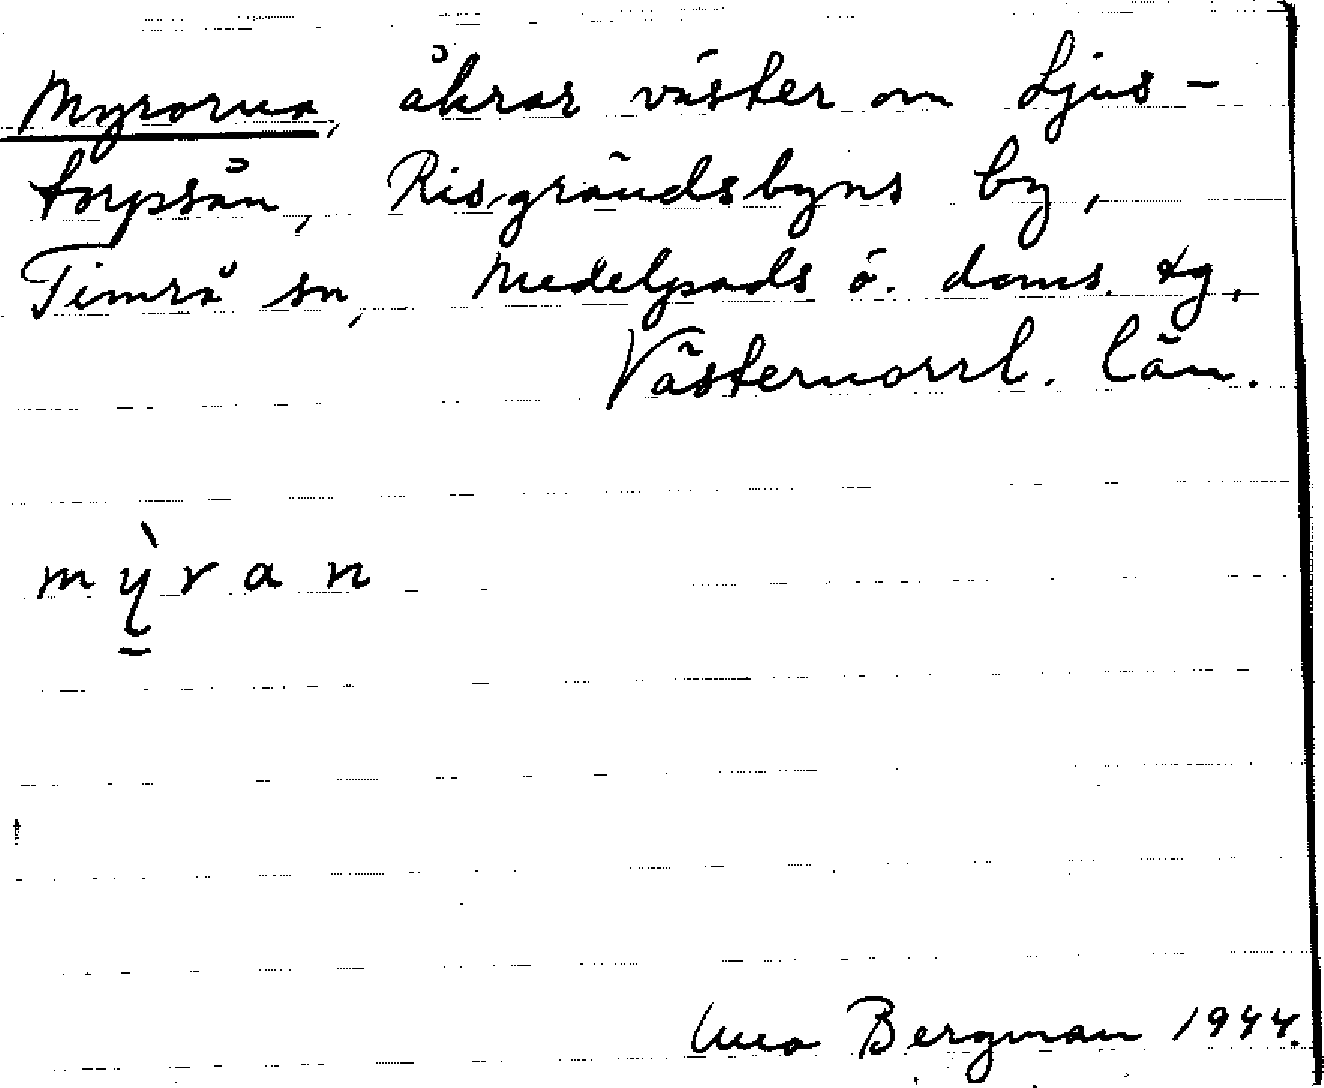 Myrorna, åkrar väster om Ljus-
torpsån, Risgrändsbyns by,
Timrå sn, Medelpads ö. doms. tg,
Västernorrl. län.
mỳ̠ran
Bergman 1944.